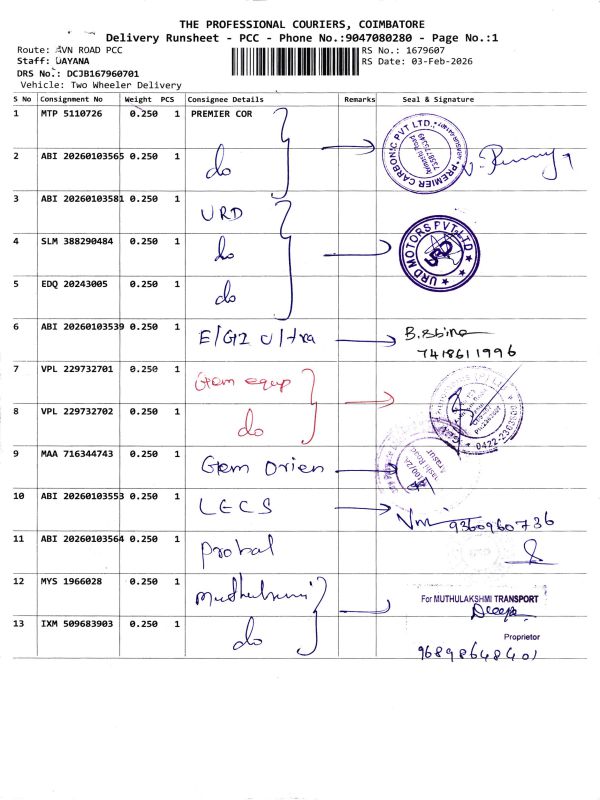 THE PROFESSIONAL COURIERS, COIMBATORE
Delivery Runsheet - PCC - Phone No.:9047080280 - Page No.:1
Route: AVN ROAD PCC
RS No.: 1679607
Staff: DAYANA
RS Date: 03-Feb-2026
DRS No.: DCJB167960701
Vehicle: Two Wheeler Delivery
S No Consignment No Weight PCS Consignee Details Remarks Seal & Signature
1 MTP 5110726 0.250 1 PREMIER COR
PREMIER CARBONIC PVT LTD.,
2 ABI 20260103565 0.250 1 do
3 ABI 20260103581 0.250 1 URD
4 SLM 388290484 0.250 1 do
URD MOTORS PVT LTD
5 EDQ 20243005 0.250 1 do
6 ABI 20260103539 0.250 1
7418611996
7 VPL 229732701 0.250 1 Gem equp
8 VPL 229732702 0.250 1 do
9 MAA 716344743 0.250 1 Gem Orien
10 ABI 20260103553 0.250 1 LECS
9360960736
11 ABI 20260103564 0.250 1 Probal
12 MYS 1966028 0.250 1
For MUTHULAKSHMI TRANSPORT
Deepa
13 IXM 509683903 0.250 1 do
Proprietor
9689868401